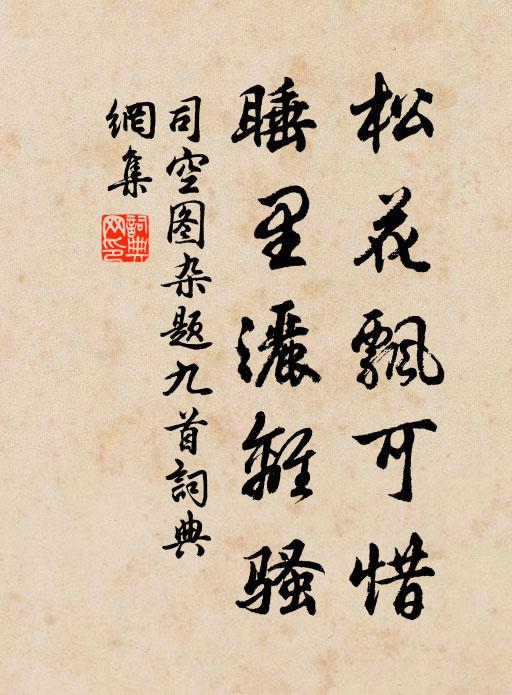 松花飘可惜
睡里灑離骚
司空图杂题九首詞典
網集
詞典
网印